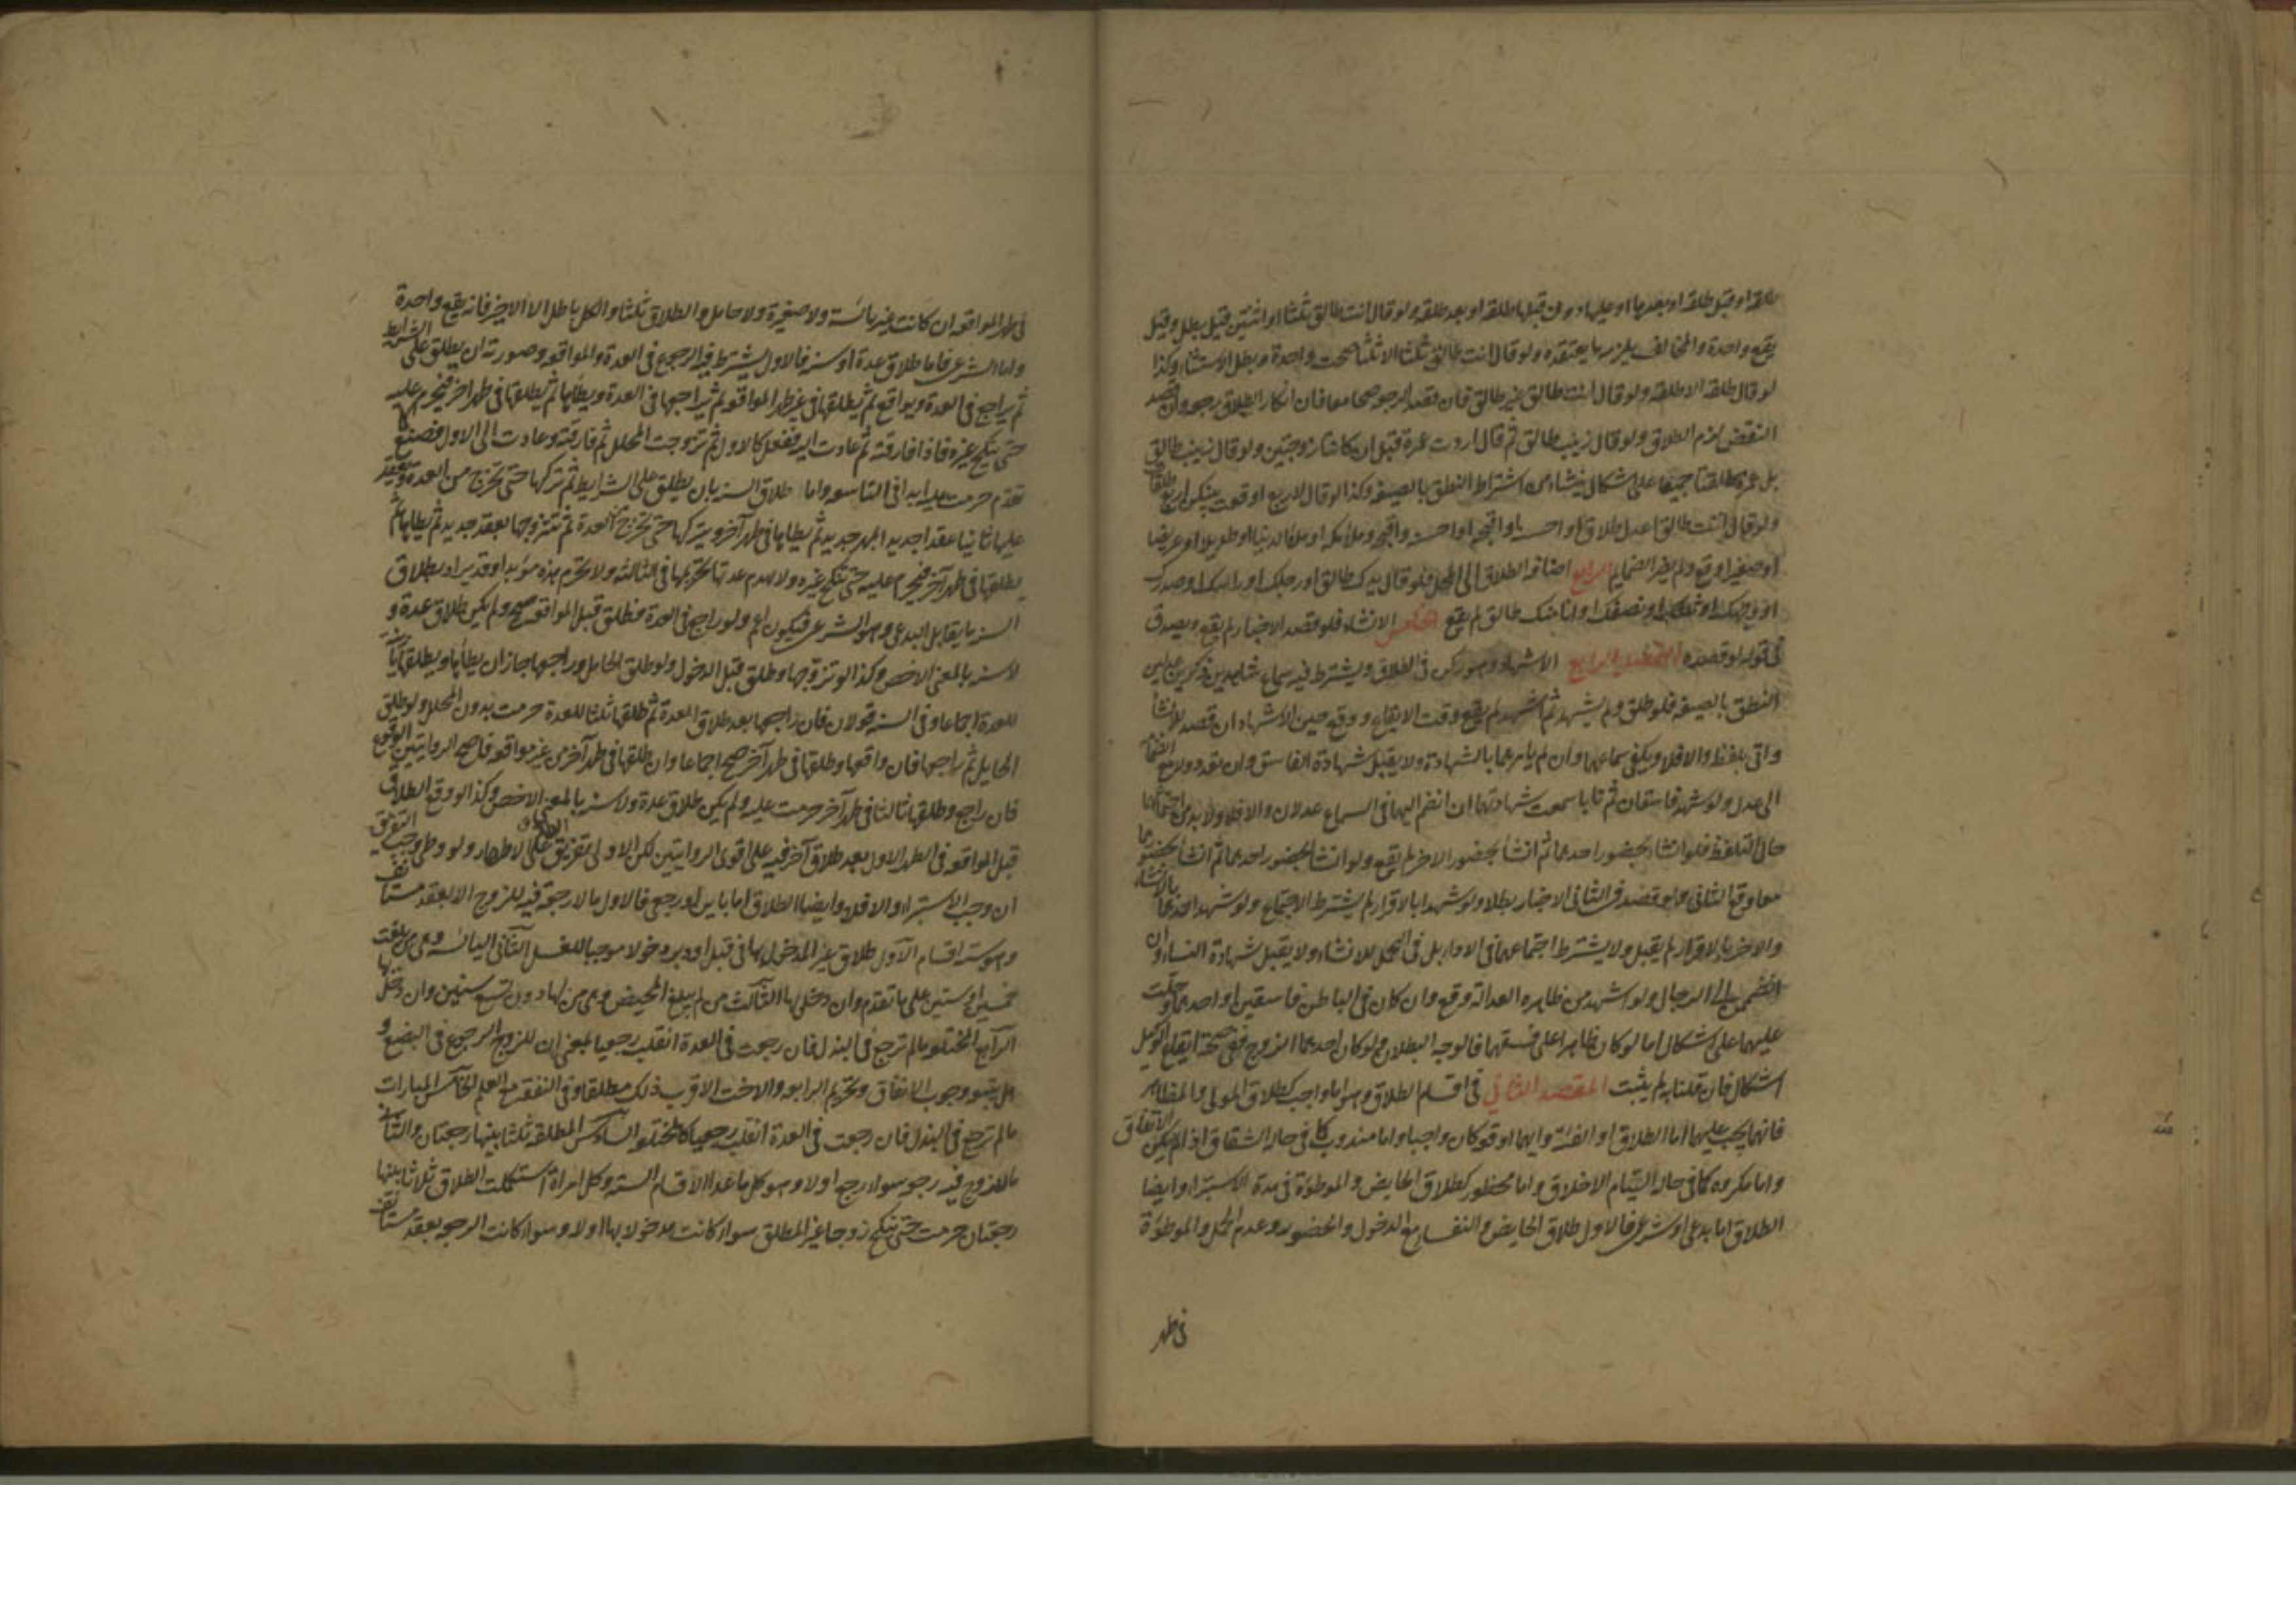 طلقة او قبل طلقة او بعدها او عليها او من قبلها طلقة او بعد طلقة ولو قال انت طالق ثلثا او اثنتين قيل يبطل وقيل
يقع واحدة والمخالف يلزمه ما يعتقده ولو قال انت طالق ثلثا الا ثلثا صحت واحدة وبطل الاستثناء وكذا
لو قال طلقة الا طلقة ولو قال انت طالق غير طالق فان قصد الرجعة صح معا فان انكار الطلاق رجعة وان قصد
النقض لزم الطلاق ولو قال زينب طالق ثم قال اردت عمرة قبل ان كانتا زوجتين ولو قال زينب طالق
بل عمرة طلقتا جميعا على اشكال ينشأ من اشتراط النطق بالصيغة وكذا لو قال لاربع اوقعت بينكن اربع طلقات
ولو قال انت طالق اعدل طلاق او احسنه او اقبحه او احسنه واقبحه وملأ مكة او ملأ الدنيا او طويلا او عريضا
او صغيرا وقع ولم يضر الضمايم الرابع اضافة الطلاق الى المحل فلو قال يدك طالق او رجلك او راسك او صدرك
او وجهك او ثلثك او نصفك او انا منك طالق لم يقع الخامس الانشاء فلو قصد الاخبار لم يقع ويصدق
في قوله لو قصده المطلب الرابع الاشهاد وهو ركن في الطلاق ويشترط فيه سماع شاهدين ذكرين عدلين
النطق بالصيغة فلو طلق ولم يشهد ثم اشهد لم يقع وقت الايقاع ووقع حين الاشهاد ان قصد الانشاء
واتى بلفظه والا فلا ويكفي سماعهما وان لم يامرهما بالشهادة ولا يقبل شهادة الفاسق وان تعدد ولا مع انضمامه
الى عدل ولو شهد فاسقان ثم تابا سمعت شهادتهما ان انضم اليهما في السماع عدلان والا فلا ولا بد من اجتماعهما
حال التلفظ فلو انشاء بحضور احدهما ثم انشأ بحضور الاخر لم يقع ولو انشأ بحضور احدهما ثم انشأ بحضورهما
معا وقع الثاني ولو قصد في الثاني الاخبار بطلا ولو شهدا بالاقرار لم يشترط الاجتماع ولو شهد احدهما بالانشاء
والاخر بالاقرار لم يقبل ولا يشترط اجتماعهما في الاداء بل في التحمل للانشاء ولا يقبل شهادة النساء وان
انضممن الى الرجال ولو اشهد من ظاهره العدالة وقع وان كان في الباطن فاسقين او احدهما وحلت
عليهما على اشكال اما لو كان ظاهرا على فسقهما فالوجه البطلان ولو كان احدهما الزوج ففي صحة ايقاع الوكيل
اشكال فان قلنا به لم يثبت المقصد الثاني في اقسام الطلاق وهو اما واجب كطلاق المولي والمظاهر
فانه يجب عليهما اما الطلاق او الفئة وايهما اوقع كان واجبا واما مندوب كما في حال الشقاق اذا لم يكن الاتفاق
واما مكروه كما في حال التيام الاخلاق واما محظور كطلاق الحايض والموطوءة في مدة الاستبراء وايضا
الطلاق اما بدعي او شرعي فالاول طلاق الحايض والنفساء مع الدخول والحضور وعدم الحمل والموطوءة
في طهر
في طهر المواقعة ان كانت غير يائسة ولا صغيرة ولا حامل والطلاق ثلثا والكل باطل الا الاخير فانه يقع واحدة
واما الشرعي فاما طلاق عدة او سنة فالاول يشترط فيه الرجوع في العدة والمواقعة وصورته ان يطلق على الشرايط
ثم يراجع في العدة ويواقع ثم يطلقها في غير طهر المواقعة ثم يراجعها في العدة ويطأها ثم يطلقها في طهر اخر فيحرم عليه
حتى ينكح غيره فاذا فارقته ثم عادت اليه ففعل كالاول ثم تزوجت المحلل ثم فارقته وعادت الى الاول فصنع كما
تقدم حرمت عليه ابدا في التاسعة واما طلاق السنة بان يطلق على الشرايط ثم يتركها حتى تخرج من العدة ويعقد
عليها ثانيا عقدا جديدا بمهر جديد ثم يطأها في طهر آخر ويتركها حتى تخرج العدة ثم يتزوجها بعقد جديد ثم يطأها ثم
يطلقها في طهر آخر فيحرم عليه حتى تنكح غيره ولا يهدم عدتها تحريمها في الثالثة ولا يحرم هذه مؤبدا وقد يراد بطلاق
السنة ما يقابل البدعي وهو الشرعي فيكون اعم ولو راجع في العدة فطلق قبل المواقعة صح ولم يكن طلاق عدة و
لا سنة بالمعنى الاخص وكذا لو تزوجها وطلق قبل الدخول ولو طلق الحامل وراجعها جاز ان يطأها ويطلقها ثانية
للعدة اجماعا وفي السنة قولان فان راجعها بعد طلاق العدة ثم طلقها ثلثا للعدة حرمت بدون المحلل ولو طلق
الحايل ثم راجعها فان واقعها وطلقها في طهر آخر صح اجماعا وان طلقها في طهر آخر من غير مواقعة فاصح الروايتين الوقوع
فان راجع وطلقها ثالثا في طهر آخر حرمت عليه ولم يكن طلاق عدة ولا سنة بالمعنى الاخص وكذا لو وقع الطلاق
قبل المواقعة في الطهر الاول بعد طلاق آخر فيه على اقوى الروايتين لكن الاولى تفريق الطلاق على الاطهار ولو وطى وجب التفريق
ان وجب الاستبراء والا فلا وايضا الطلاق اما باين او رجعي فالاول ما لا رجعة فيه للزوج الا بعقد مستأنف
وهو ستة اقسام الاول طلاق غير المدخول بها في قبل او دبر دخولا موجبا للغسل الثاني اليائسة وهي من بلغت
خمسين او ستين على ما تقدم وان دخل بها الثالث من لم يبلغ المحيض وهي من لها دون تسع سنين وان دخل بها
الرابع المختلعة ما لم ترجع في البذل فان رجعت في العدة انقلب رجعيا بمعنى ان للزوج الرجوع في البضع و
هل يتبعه وجوب الانفاق وتحريم الرابعة والاخت الاقرب ذلك مطلقا وفي النفقة مع العلم الخامس المبارات
ما لم ترجع في البذل فان رجعت في العدة انقلب رجعيا كالمختلعة السادس المطلقة ثلثا بينها رجعتان والثاني
ما للزوج فيه رجعة سواء رجع اولا وهو كل ما عدا الاقسام الستة وكل امراة استكملت الطلاق ثلاثا بينها
رجعتان حرمت حتى ينكح زوجا غير المطلق سواء كانت مدخولا بها اولا وسواء كانت الرجعة بعقد مستأنف